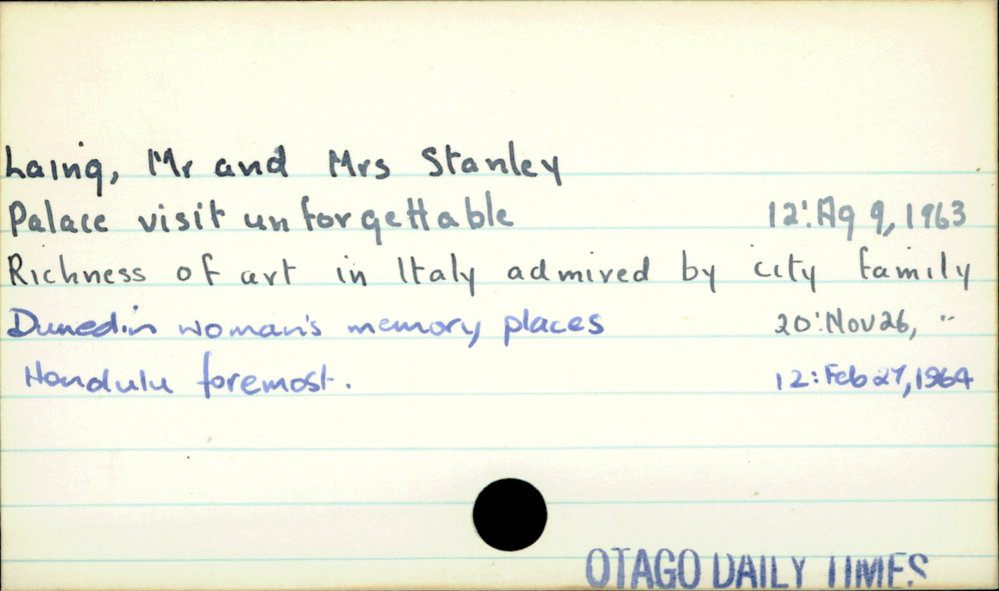 Laing, Mr and Mrs Stanley
Palace visit unforgettable 12:Ag 9, 1963
Richness of art in Italy admired by city family
Dunedin woman's memory places 20:Nov 26, "
Honolulu foremost. 12:Feb 27, 1964
OTAGO DAILY TIMES